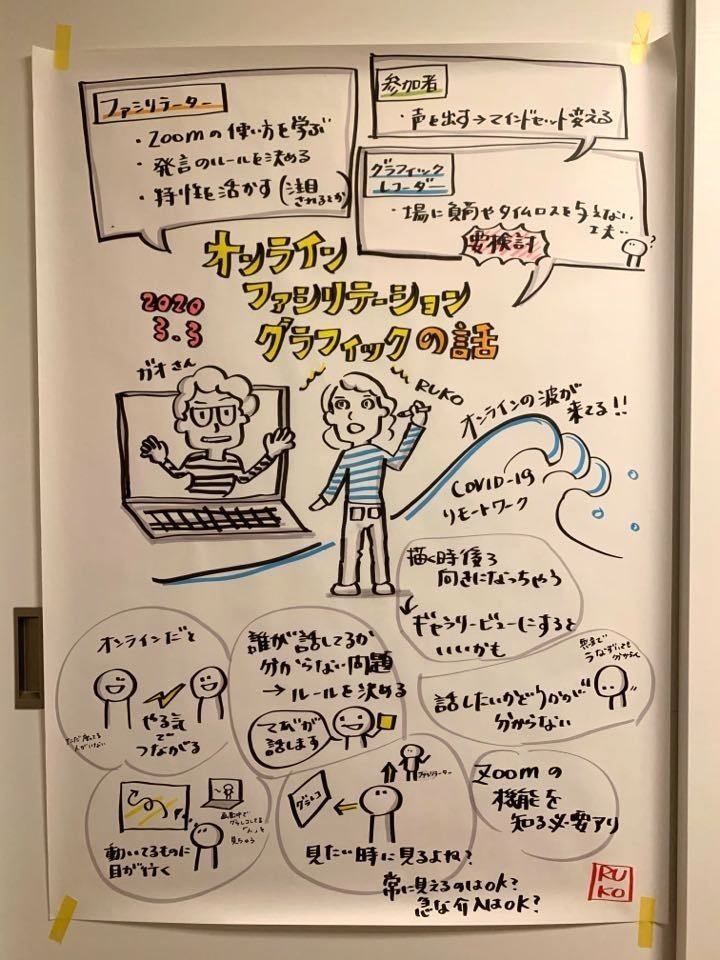 ファシリテーター
・Zoomの使い方を学ぶ
・発言のルールを決める
・特性を活かす(注目
されるとか)
参加者
・声を出す→マインドセット変える
グラフィック
レコーダー
・場に負荷やタイムロスを与えない
工夫…
?
要検討
オンライン
ファシリテーション
グラフィックの話
2020
3.3
ガオさん
RUKO
オンラインの波が
来てる!!
COVID-19
リモートワーク
描く時後ろ
向きになっちゃう
ギャラリービューにすると
いいかも
オンラインだと
やる気
で
つながる
誰が話してるか
分からない問題
→ルールを決める
てあげが
話します
話したいかどうかが
分からない
動いてるものに
目が行く
グラレコ
ファシリテーター
見たい時に見るよね?
常に見えるのはOK?
急な介入はOK?
Zoomの
機能を
知る必要アリ
RU
KO